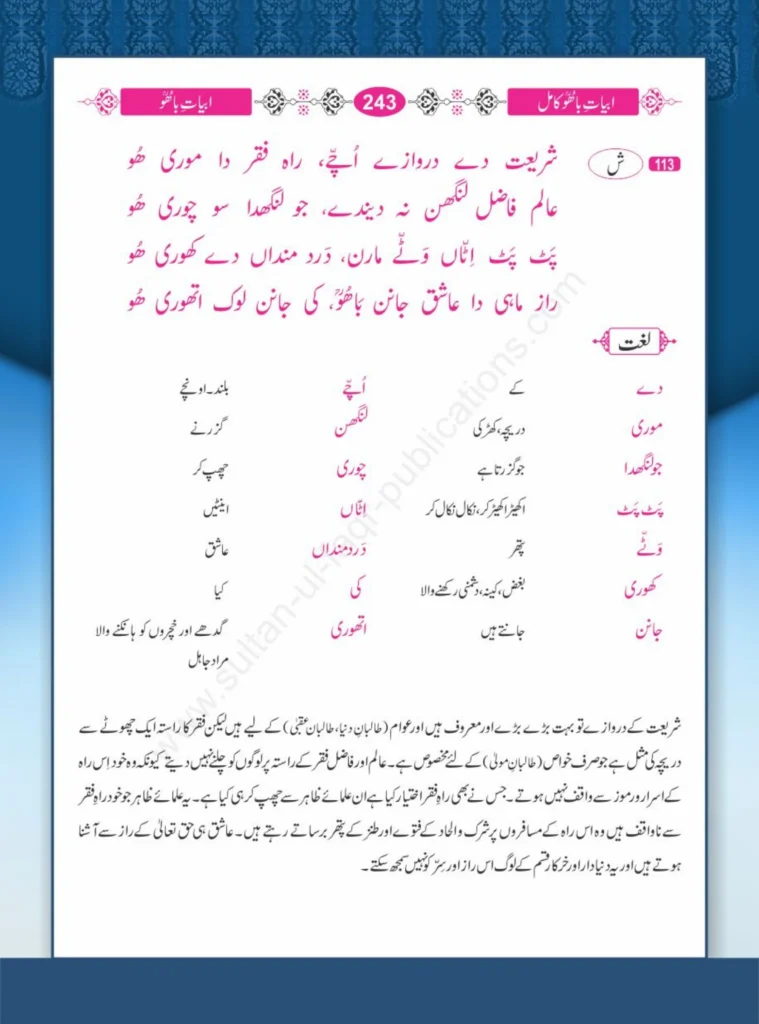 ابیاتِ باھُوؒ کامل 243 ابیاتِ باھُوؒ
113 ش
شریعت دے دروازے اُچّے، راہ فقر دا موری ھُو
عالم فاضل لنگھن نہ دیندے، جو لنگھدا سو چوری ھُو
پَٹ پَٹ اِٹّاں وَٹّے مارن، دَرد منداں دے کھوری ھُو
راز ماہی دا عاشق جانن باھُوؒ، کی جانن لوک اتھوری ھُو
لغت
دے کے اُچّے بلند۔اونچے
موری دریچہ، کھڑکی لنگھن گزرنے
جو لنگھدا جو گزرتا ہے چوری چھپ کر
پَٹ پَٹ اکھیڑ اکھیڑ کر، نکال نکال کر اِٹّاں اینٹیں
وَٹّے پتھر دَردمنداں عاشق
کھوری بغض، کینہ، دشمنی رکھنے والا کی کیا
جانن جانتے ہیں اتھوری گدھے اور خچروں کو ہانکنے والا
مراد جاہل
شریعت کے دروازے تو بہت بڑے بڑے اور معروف ہیں اور عوام (طالبانِ دنیا، طالبانِ عقبیٰ) کے لیے ہیں لیکن فقر کا راستہ ایک چھوٹے سے
دریچہ کی مثل ہے جو صرف خواص (طالبانِ مولیٰ) کے لئے مخصوص ہے۔ عالم اور فاضل فقر کے راستہ پر لوگوں کو چلنے نہیں دیتے کیونکہ وہ خود اِس راہ
کے اسرار و رموز سے واقف نہیں ہوتے۔ جس نے بھی راہِ فقر اختیار کیا ہے ان علمائے ظاہر سے چھپ کر ہی کیا ہے۔ یہ علمائے ظاہر جو خود راہِ فقر
سے ناواقف ہیں وہ اس راہ کے مسافروں پر شرک و الحاد کے فتوے اور طنز کے پتھر برساتے رہتے ہیں۔ عاشق ہی حق تعالیٰ کے راز سے آشنا
ہوتے ہیں اور یہ دنیادار اور خرکار قسم کے لوگ اس راز اور سِرّ کو نہیں سمجھ سکتے۔
www.sultan-ul-faqr-publications.com